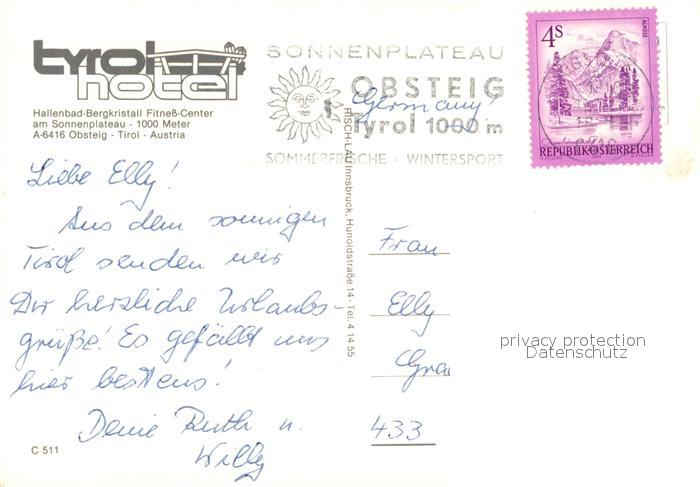 tyrol
hotel
Hallenbad-Bergkristall Fitneß-Center
am Sonnenplateau - 1000 Meter
A-6416 Obsteig - Tirol - Austria
SONNENPLATEAU
OBSTEIG
Tyrol 1000 m
SOMMERFRISCHE · WINTERSPORT
Germany!
4S
ALMSEE
REPUBLIK ÖSTERREICH
Liebe Elly!
Aus dem sonnigen
Tirol senden wir
Dir herzliche Urlaubs-
grüße! Es gefällt uns
hier bestens!
Deine Ruth u.
Willy
C 511
RISCH-LAU Innsbruck, Hunoldstraße 14 - Tel. 4 14 55
Frau
Elly
Gra
433
privacy protection
Datenschutz